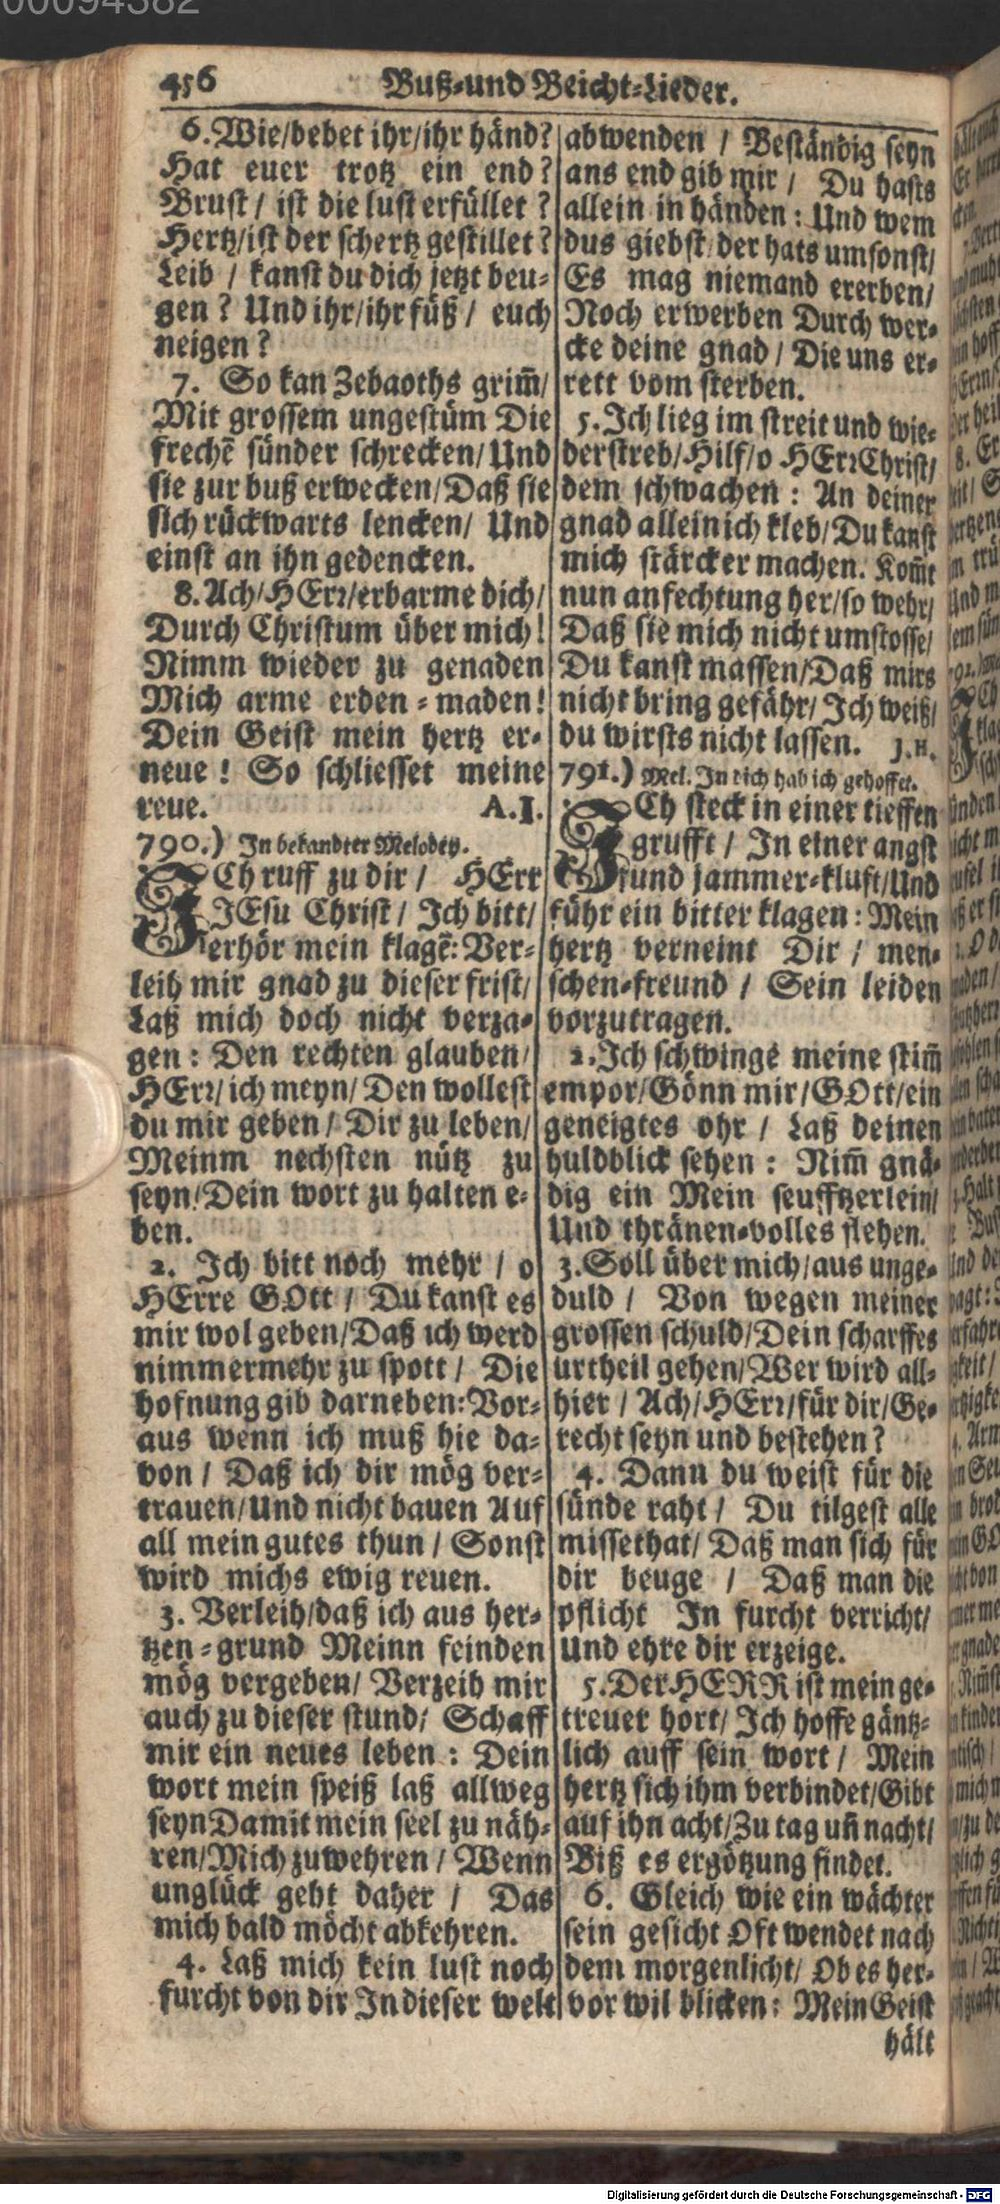 00094382
456 Buß-und Beicht-Lieder.
6. Wie/bebet ihr/ihr händ?
Hat euer trotz ein end?
Brust / ist die lust erfüllet?
Hertz/ist der schertz gestillet?
Leib / kanst du dich jetzt beu-
gen? Und ihr/ihr füß / euch
neigen?
7. So kan Zebaoths grim̃/
Mit grossem ungestüm Die
frechẽ sünder schrecken/ Und
sie zur buß erwecken/Daß sie
sich rückwarts lencken/ Und
einst an ihn gedencken.
8. Ach/HErꝛ/erbarme dich/
Durch Christum über mich!
Nimm wieder zu genaden
Mich arme erden-maden!
Dein Geist mein hertz er-
neue! So schliesset meine
reue. A.I.
790.) In bekandter Melodey.
ICh ruff zu dir / HErr
JEsu Christ / Ich bitt/
erhör mein klagẽ: Ver-
leih mir gnad zu dieser frist/
Laß mich doch nicht verza-
gen: Den rechten glauben/
HErꝛ/ ich meyn/ Den wollest
du mir geben / Dir zu leben/
Meinm nechsten nütz zu
seyn/Dein wort zu halten e-
ben.
2. Ich bitt noch mehr / o
HErre GOtt / Du kanst es
mir wol geben/Daß ich werd
nimmermehr zu spott / Die
hofnung gib darneben: Vor-
aus wenn ich muß hie da-
von / Daß ich dir mög ver-
trauen/Und nicht bauen Auf
all mein gutes thun / Sonst
wird michs ewig reuen.
3. Verleih/daß ich aus her-
tzen-grund Meinn feinden
mög vergeben/ Verzeih mir
auch zu dieser stund/ Schaff
mir ein neues leben: Dein
wort mein speiß laß allweg
seyn Damit mein seel zu näh-
ren/Mich zu wehren / Wenn
unglück geht daher / Das
mich bald möcht abkehren.
4. Laß mich kein lust noch
furcht von dir In dieser welt
abwenden / Beständig seyn
ans end gib mir / Du hasts
allein in händen: Und wem
dus giebst/der hats umsonst/
Es mag niemand ererben/
Noch erwerben Durch wer-
cke deine gnad / Die uns er-
rett vom sterben.
5. Ich lieg im streit und wie-
derstreb/Hilf/o HErꝛ Christ/
dem schwachen: An deiner
gnad allein ich kleb/Du kanst
mich stärcker machen. Kom̃t
nun anfechtung her/so wehr/
Daß sie mich nicht umstosse/
Du kanst massen/Daß mirs
nicht bring gefähr/ Ich weiß/
du wirsts nicht lassen. J.H.
791.) Mel. In dich hab ich gehoffet.
ICh steck in einer tieffen
grufft / In einer angst
und jammer-kluft/Und
führ ein bitter klagen: Mein
hertz verneint Dir / men-
schen-freund / Sein leiden
vorzutragen.
2. Ich schwinge meine stim̃
empor/Gönn mir/GOtt/ein
geneigtes ohr / Laß deinen
huldblick sehen: Nim̃ gnä-
dig ein Mein seufftzerlein/
Und thränen-volles flehen.
3. Soll über mich/aus unge-
duld / Von wegen meiner
grossen schuld/Dein scharffes
urtheil gehen/Wer wird all-
hier / Ach/HErꝛ/für dir/Ge-
recht seyn und bestehen?
4. Dann du weist für die
sünde raht / Du tilgest alle
missethat/ Daß man sich für
dir beuge / Daß man die
pflicht In furcht verricht/
Und ehre dir erzeige.
5. Der HERR ist mein ge-
treuer hort/ Ich hoffe gäntz-
lich auff sein wort / Mein
hertz sich ihm verbindet/Gibt
auf ihn acht/Zu tag uñ nacht/
Biß es ergötzung findet.
6. Gleich wie ein wächter
sein gesicht Oft wendet nach
dem morgenlicht/ Ob es her-
vor wil blicken: Mein Geist
hält
Digitalisierung gefördert durch die Deutsche Forschungsgemeinschaft - DFG